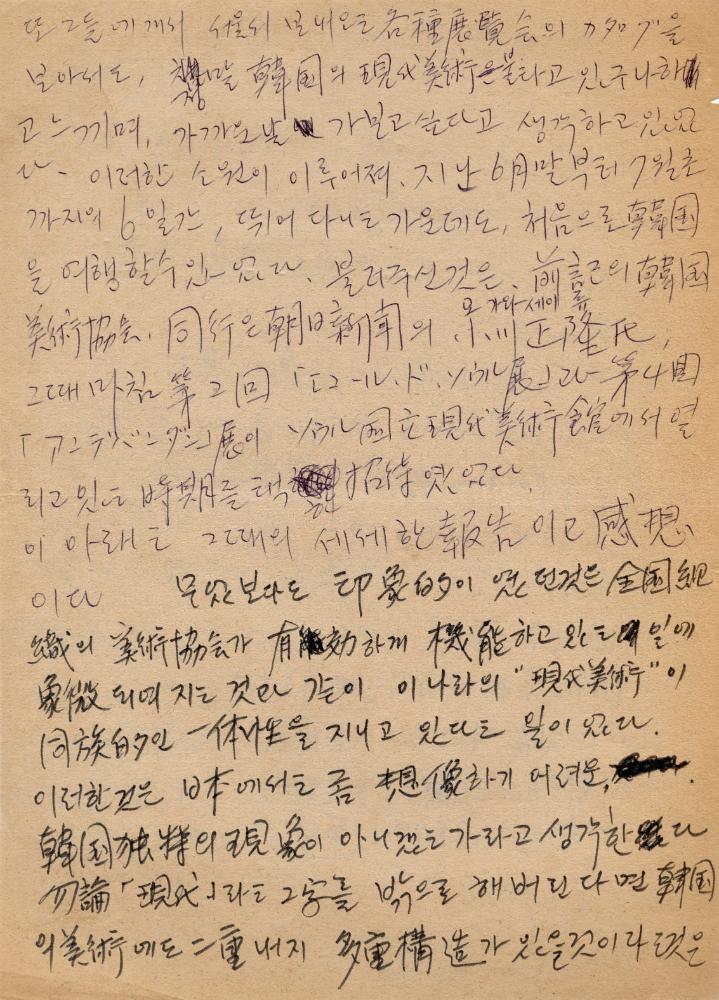 또 그들에게서 서울서 보내오는 各種展覽会의 カタログ을
보아서도, 정말 韓国의 現代美術은 불타고 있구나 하
고 느끼며, 가까운날 가보고 싶다고 생각하고 있었
다. 이러한 소원이 이루어져. 지난 6月말부터 7월초
까지의 6일간, 뛰어 다니는 가운데도, 처음으로 韓国
을 여행할수 있었다. 불러주신것은, 前記의 韓国
美術協会. 同行은 朝日新聞의 小川正隆氏,
오가와 세이류
그때 마침 第2回「エコール.ド.ソウル展」과 第4回
「アンデパンダン」展이 ソウル国立現代美術館에서 열
리고 있는 時期를 택한 招待였었다.
이 아래는 그때의 세세한 報告이고 感想
이다 무엇보다도 印象的이 였던것은 全国組
織의 美術協会가 有効하게 機能하고 있는 일에
象徴되여 지는 것과 같이 이나라의 "現代美術"이
同族的인 一体性을 지니고 있다는 일이 었다.
이러한것은 日本에서는 좀 想像하기 어려운,
韓国独特의 現象이 아니겠는가라고 생각한다
勿論「現代」라는 그字를 밖으로 해버린다면 韓国
의 美術에도 二重 내지 多重構造가 있을것이라는것은